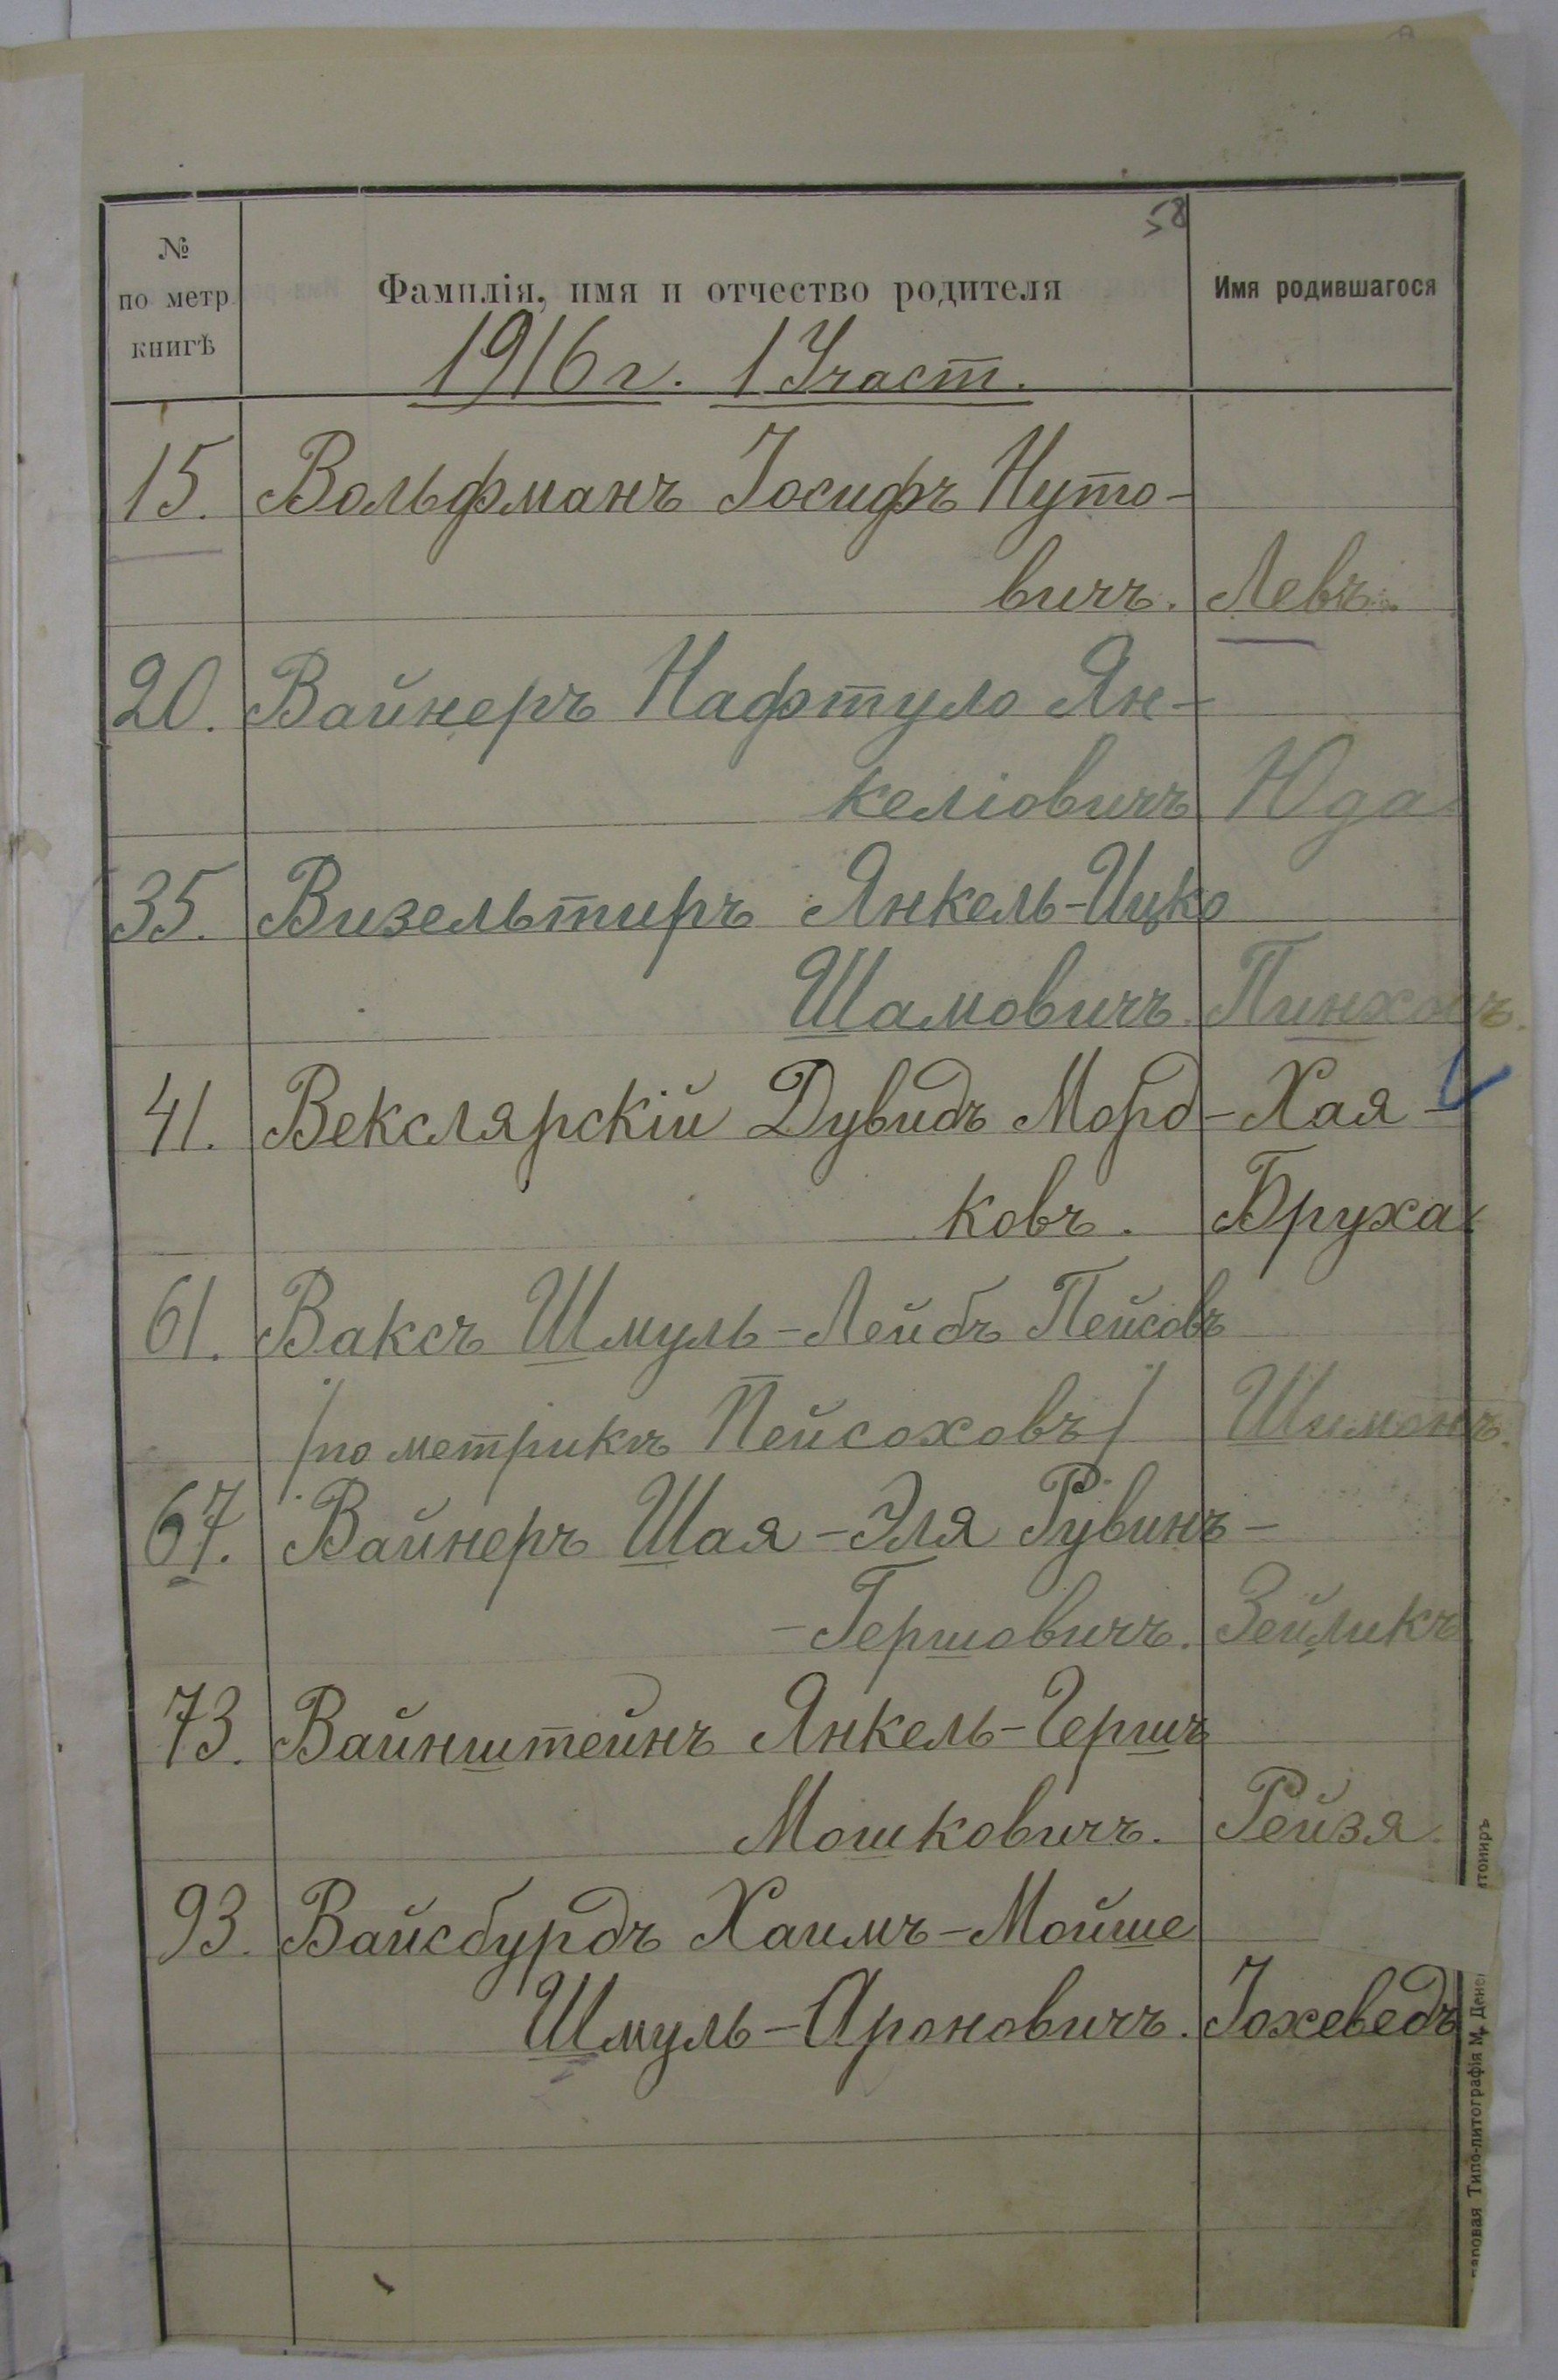 58
№
по метр.
книгѣ
Фамилія, имя и отчество родителя
Имя родившагося
1916 г. 1 Участ.
15. Вольфманъ Іосифъ Нуто-
вичъ. Левъ.
20. Вайнеръ Нафтуло Ян-
келіовичъ Юда
35. Визельтиръ Янкель-Ицко
Шамовичъ. Пинхосъ.
41. Векслярскій Дувидъ Морд- Хая-
ковъ. Бруха.
61. Ваксъ Шмуль-Лейбъ Пейсовъ
/по метрикѣ Пейсоховъ/ Шимонъ.
67. Вайнеръ Шая-Эля Рувинъ-
-Гершовичъ. Зейликъ
73. Вайнштейнъ Янкель-Гершъ
Мошковичъ. Рейзя.
93. Вайсбурдъ Хаимъ-Мойше
Шмуль-Ароновичъ. Іохеведъ
Типо-литографія М.